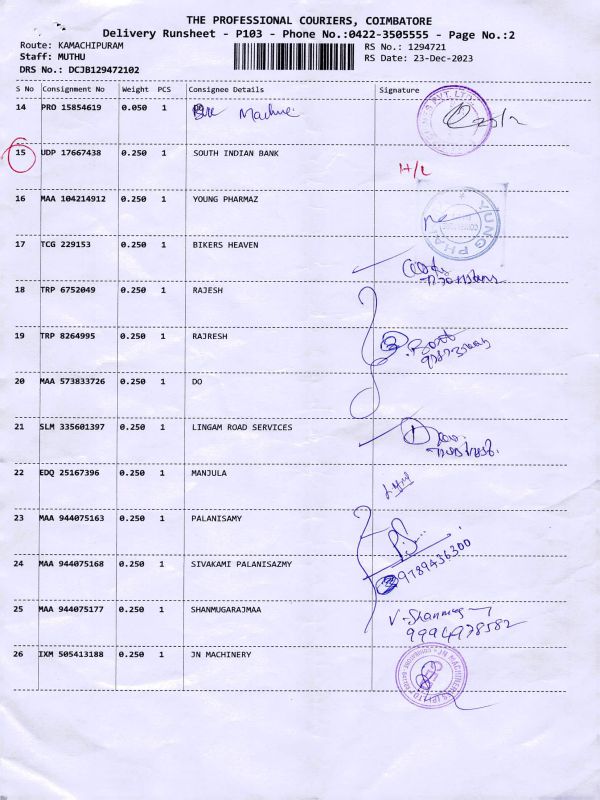 THE PROFESSIONAL COURIERS, COIMBATORE
Delivery Runsheet - P103 - Phone No.:0422-3505555 - Page No.:2
Route: KAMACHIPURAM
RS No.: 1294721
Staff: MUTHU
RS Date: 23-Dec-2023
DRS No.: DCJB129472102
S No Consignment No Weight PCS Consignee Details Signature
14 PRO 15854619 0.050 1 Machine
15 UDP 17667438 0.250 1 SOUTH INDIAN BANK H/L
16 MAA 104214912 0.250 1 YOUNG PHARMAZ
17 TCG 229153 0.250 1 BIKERS HEAVEN
18 TRP 6752049 0.250 1 RAJESH
19 TRP 8264995 0.250 1 RAJRESH
20 MAA 573833726 0.250 1 DO
21 SLM 335601397 0.250 1 LINGAM ROAD SERVICES
22 EDQ 25167396 0.250 1 MANJULA
23 MAA 944075163 0.250 1 PALANISAMY
24 MAA 944075168 0.250 1 SIVAKAMI PALANISAZMY
9789436300
25 MAA 944075177 0.250 1 SHANMUGARAJMAA
9994978582
26 IXM 505413188 0.250 1 JN MACHINERY